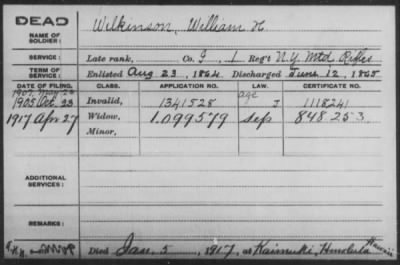 DEAD
NAME OF SOLDIER:
Wilkinson, William H.
SERVICE:
Late rank, Co. G, 1 Reg't N.Y. Mtd Rifles
TERM OF SERVICE:
Enlisted Aug 23, 1864. Discharged June 12, 1865
DATE OF FILING. CLASS. APPLICATION NO. LAW. CERTIFICATE NO.
1905 Oct. 23 Invalid, 1341528 age J 1118241
1917 Apr 27 Widow, 1.099579 Sep 8 848 253
Minor,
ADDITIONAL SERVICES:
REMARKS:
Died Jan. 5, 1917, at Kaimuki, Honolulu Hawaii